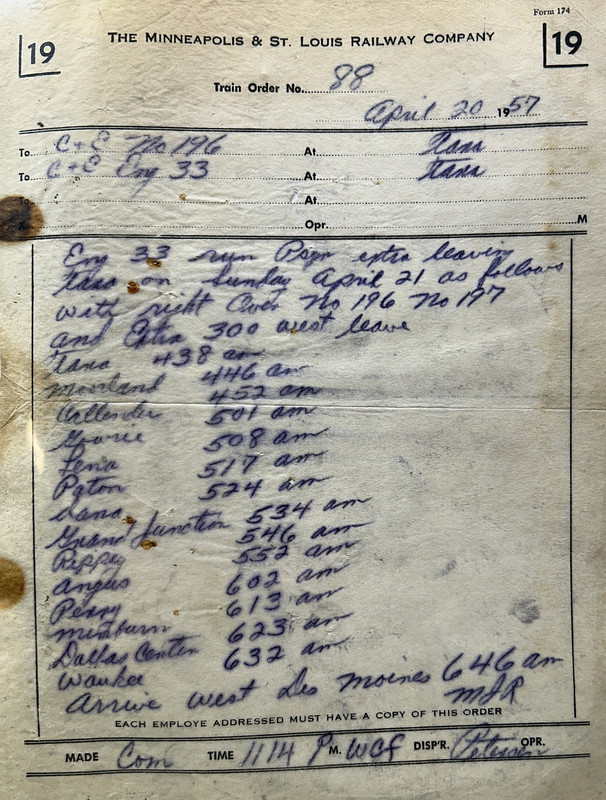 Form 174
19 THE MINNEAPOLIS & ST. LOUIS RAILWAY COMPANY 19
Train Order No. 88
April 20 1957
To C+E No 196 At Tara
To C+E Eng 33 At Tara
To At
X Opr. M
Eng 33 run Psgr extra leaving
Tara on Sunday April 21 as follows
with right Over No 196 No 197
and Extra 300 west leave
Tara 438 am
Moorland 446 am
Callender 452 am
Gowrie 501 am
Lena 508 am
Paton 517 am
Dana 524 am
Grand Junction 534 am
Rippey 546 am
Angus 552 am
Perry 602 am
Minburn 613 am
Dallas Center 623 am
Waukee 632 am
Arrive West Des Moines 646 am
MJR
EACH EMPLOYE ADDRESSED MUST HAVE A COPY OF THIS ORDER
MADE Com TIME 1114 P M. WCF DISP'R. Petersen OPR.